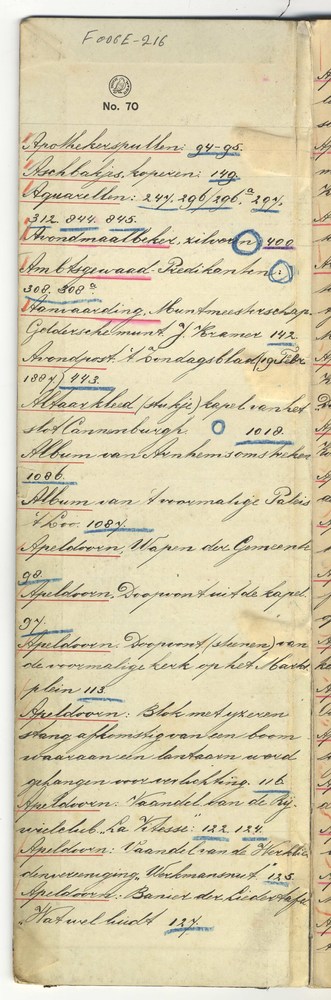 F006E-216
No. 70
Apothekerspullen: 94-95.
Aschbakjes, koperen: 149.
Aquarellen: 247, 296/296a, 297,
312. 844. 845.
Avondmaalbeker, zilveren 400
Ambtsgewaad: Predikanten:
308. 308a
Aanvaarding, Muntmeesterschap
Goldersche munt J. Kramer 142
Avondpost. 't Zondagsblad (19 Febr
1887) 443.
Altaarkleed (stukje) kapel van het
slot Cannenburgh. 1018.
Album van Arnhems omstreken
1086.
Album van 't voormalige Paleis
't Loo. 1087.
Apeldoorn, Wapen der Gemeente
98.
Apeldoorn, Doopvont uit de kapel.
97.
Apeldoorn. Doopvont (steenen) van
de voormalige kerk op het Markt
plein 113.
Apeldoorn: Blok met yzeren
stang afkomstig van een boom
waaraan een lantaarn werd
gehangen voor verlichting. 116.
Apeldoorn: Vaandel van de Rij-
wielclub "La Vitesse": 122. 124.
Apeldoorn: Vaandel van de Werklie
denvereeniging "Werkmansnut" 125
Apeldoorn: Banier der Liedertafel
"Nat wel luidt 127.